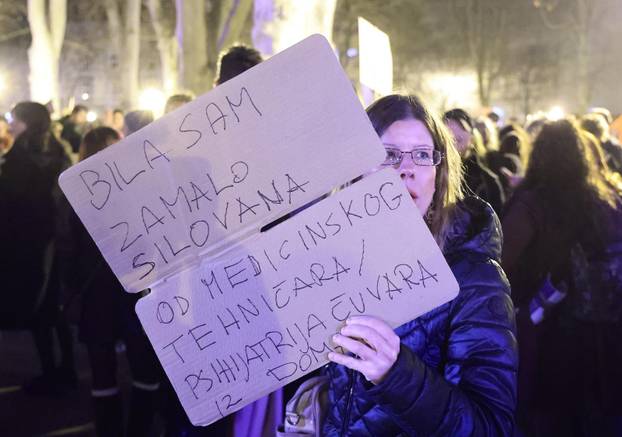 BILA SAM
ZAMALO
SILOVANA
OD MEDICINSKOG
TEHNIČARA/
PSHIJATRIJA ČUVARA
12 DOMA